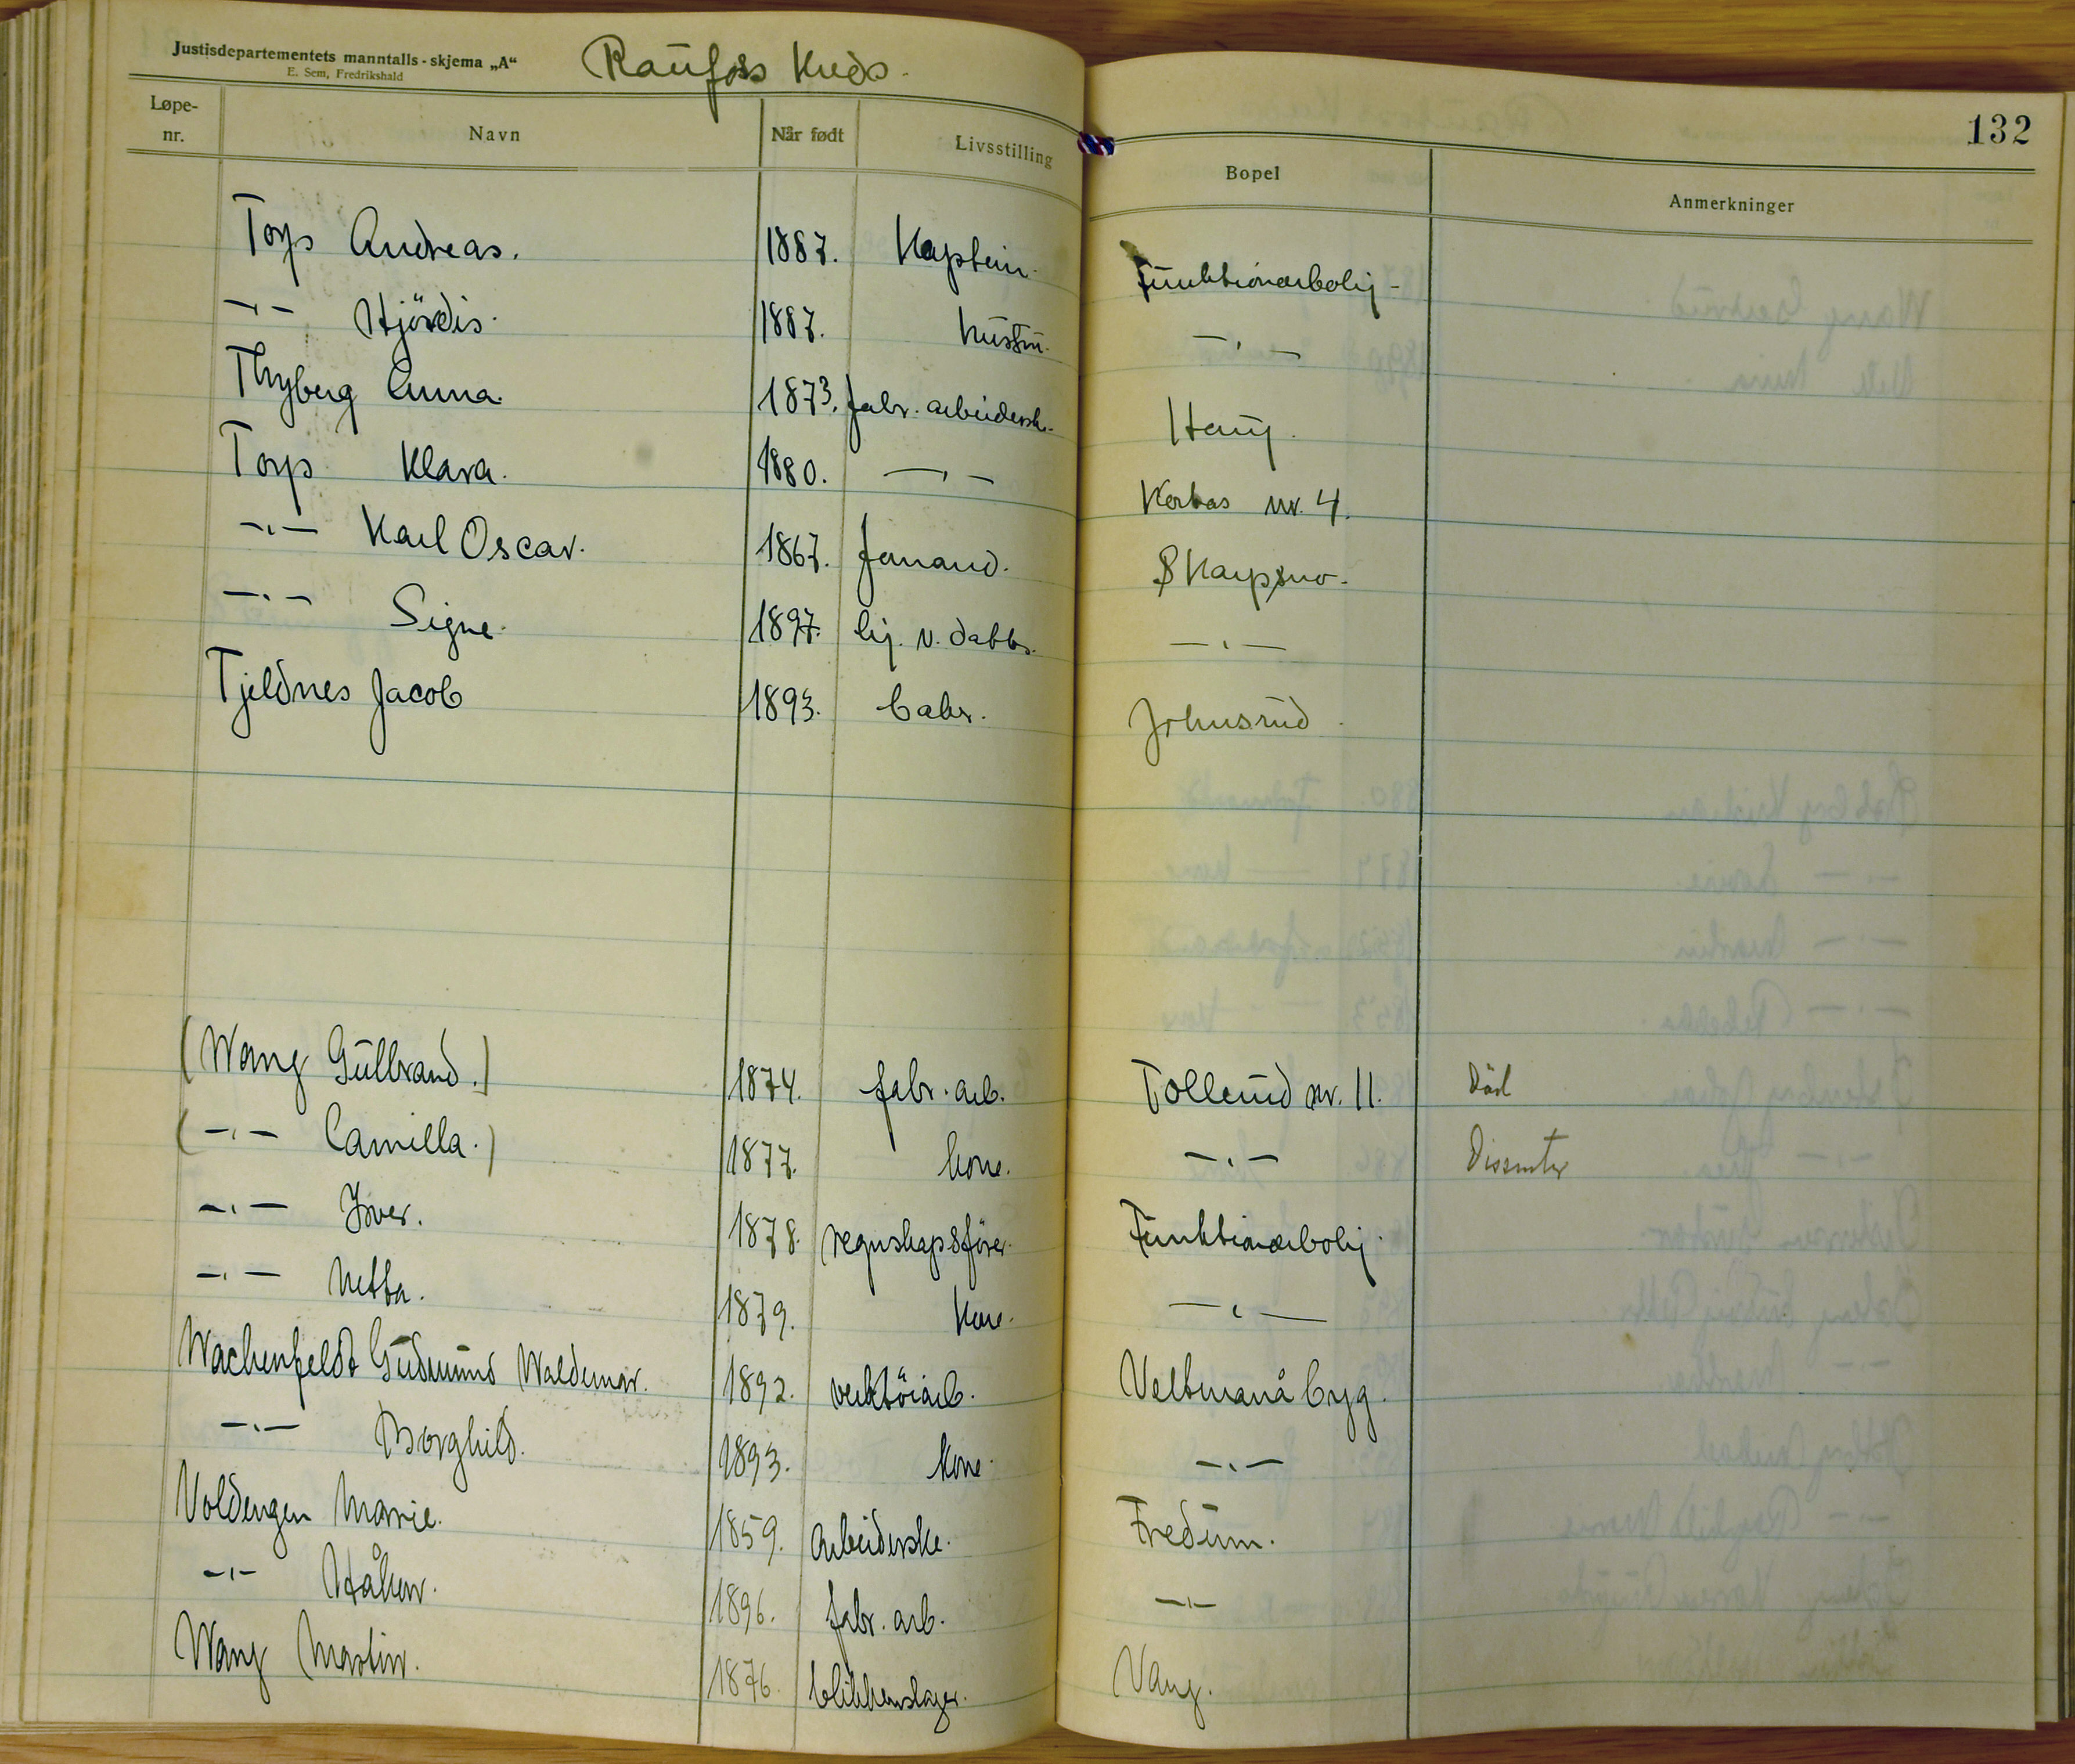 Justisdepartementets manntalls-skjema „A“
E. Sem, Fredrikshald
Raufoss Kreds.
132
Løpe-nr. Navn Når født Livsstilling Bopel Anmerkninger
Torp Andreas. 1887. Kaptein. Funktionærbolig -
—"— Hjördis. 1887. hustru. —"—
Thyberg Anna. 1873. fabr. arbeiderske. Haug.
Torp Klara. 1880. —"— Kortas nr. 4.
—"— Karl Oscar. 1867. formand. Skarpsno.
—"— Signe. 1897. hj. v. datter. —"—
Tjeldnes Jacob 1893. Johnsrud.
(Wang Gulbrand.) 1874. fabr. arb. Tollerud nr. 11. Död
(—"— Camilla.) 1877. kone. —"— Dissenter
—"— Iver. 1878. regnskapsförer. Funktionærbolig.
—"— Netta. 1879. kone. —"—
Wachenfeldt Gudmund Waldemar. 1892. verktöiarb. Veltmanå byg.
—"— Borghild. 1893. kone. —"—
Voldengen Marie. 1859. Arbeiderske. Fredum.
—"— Håkon. 1896. fabr. arb. —"—
Wang Martin. 1876. blikkenslager. Vang.